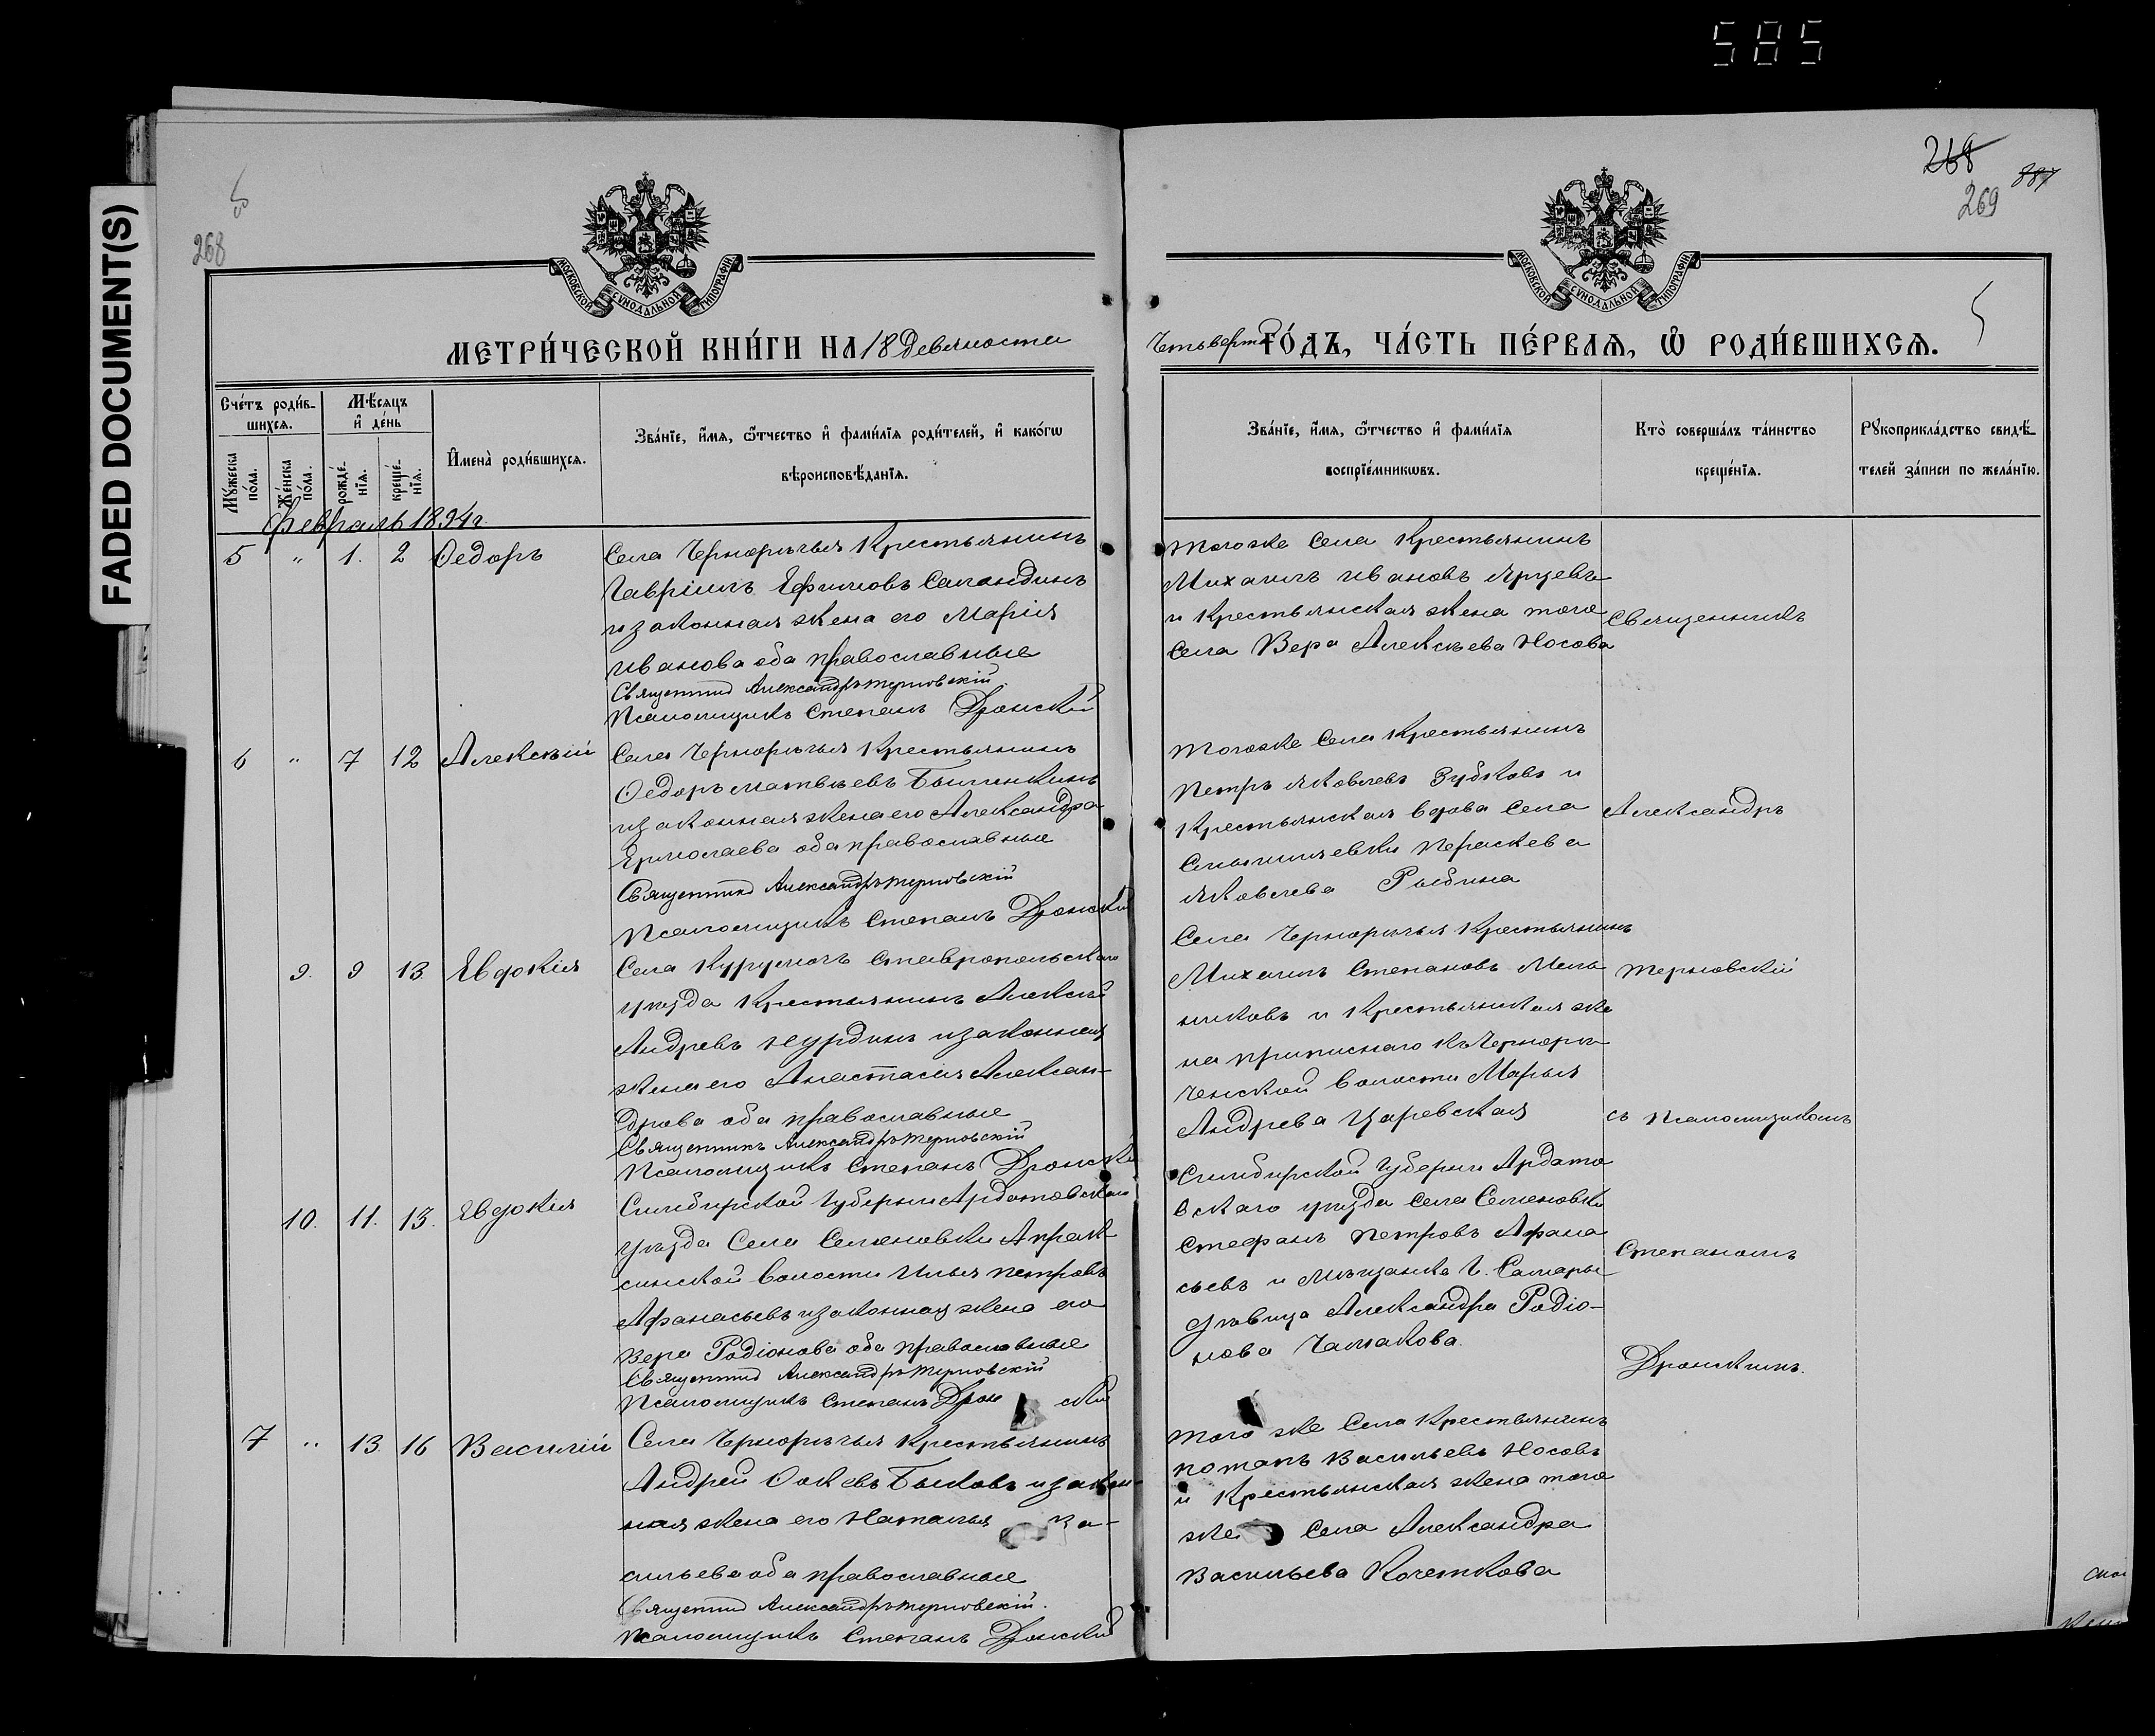 585
FADED DOCUMENT(S)
268
268
269
887
5
5
МОСКОВСКОЙ СѴНОДАЛЬНОЙ ТИПОГРАФІИ
МОСКОВСКОЙ СѴНОДАЛЬНОЙ ТИПОГРАФІИ
МЕТРИ́ЧЕСКОЙ КНИ́ГИ НА 18 Девяносто
Четвертый ГО́ДЪ, ЧА́СТЬ ПЕ́РВАѦ, Ѡ РОДИ́ВШИХСѦ.
Сче́тъ роди́в-
шихсѧ.
Мѣ́сѧцъ
и де́нь
Мꙋ́жеска
по́ла.
Же́нска
по́ла.
рожде́-
нїѧ.
креще́-
нїѧ.
И҆мена̀ роди́вшихсѧ.
Зва́нїе, и҆́мѧ, ѻ҆́тчество и҆ фами́лїѧ роди́телей, и҆ како́гѡ
вѣроисповѣ́данїѧ.
Зва́нїе, и҆́мѧ, ѻ҆́тчество и҆ фами́лїѧ
воспрїе́мникѡвъ.
Кто̀ соверша́лъ та́инство
креще́нїѧ.
Рꙋкоприкла́дство свидѣ́-
телей за́писи по жела́нїю.
Февраль 1894 г.
5 " 1. 2 Ѳедоръ
Села Чернорѣчья Крестьянинъ
Гавріилъ Ефимовъ Саландинъ
и законная жена его Марія
Иванова оба православные
Священникъ Александръ Терновскій
Псаломщикъ Степанъ Дронскій
Тогоже Села Крестьянинъ
Михаилъ Ивановъ Ярцевъ
и Крестьянская жена того
Села Вера Алексѣева Носова
Священникъ
6 " 7 12 Алексѣй
Села Чернорѣчья Крестьянинъ
Ѳедоръ Матвѣевъ
и законная жена его Александра
Ермолаева оба православные
Священникъ Александръ Терновскій
Псаломщикъ Степанъ Дронскій
Тогоже Села Крестьянинъ
Петръ Яковлевъ Зубковъ и
Крестьянская вдова Села
Смышляевки Параскева
Яковлева Рыбина
Александръ
9. 9 13 Евдокія
Села Курумочъ Ставропольскаго
уѣзда Крестьянинъ Алексѣй
Андревъ Нурдинъ и законная
жена его Анастасія Алексан-
дрова оба православные
Священникъ Александръ Терновскій
Псаломщикъ Степанъ Дронскій
Села Чернорѣчья Крестьянинъ
Михаилъ Степановъ Мель
никовъ и Крестьянская же
на приписнаго къ Чернорѣ
ченской волости Марья
Андрева Царевская
Терновскій
съ Псаломщикомъ
10. 11. 13. Евдокія
Симбирской Губерніи Ардатовскаго
уѣзда Села Семеновки Апрак-
синской волости Илья Петровъ
Афанасьевъ и законная жена его
Вера Родіонова оба православные
Священникъ Александръ Терновскій
Псаломщикъ Степанъ Дронскій
Симбирской Губерніи Ардато
вскаго уѣзда Села Семеновки
Стефанъ Петровъ Афана
сьевъ и Мѣщанка Г. Самары
дѣвица Александра Родіо-
нова Чамакова.
Степаномъ
Дронскимъ.
7 " 13. 16 Василій
Села Чернорѣчья Крестьянинъ
Андрей Быковъ и закон-
ная жена его Наталья Ва-
сильева оба православные
Священникъ Александръ Терновскій.
Псаломщикъ Степанъ Дронскій
Того же Села Крестьянинъ
Потапъ Васильевъ Носовъ
и Крестьянская жена того
же Села Александра
Васильева Кочеткова